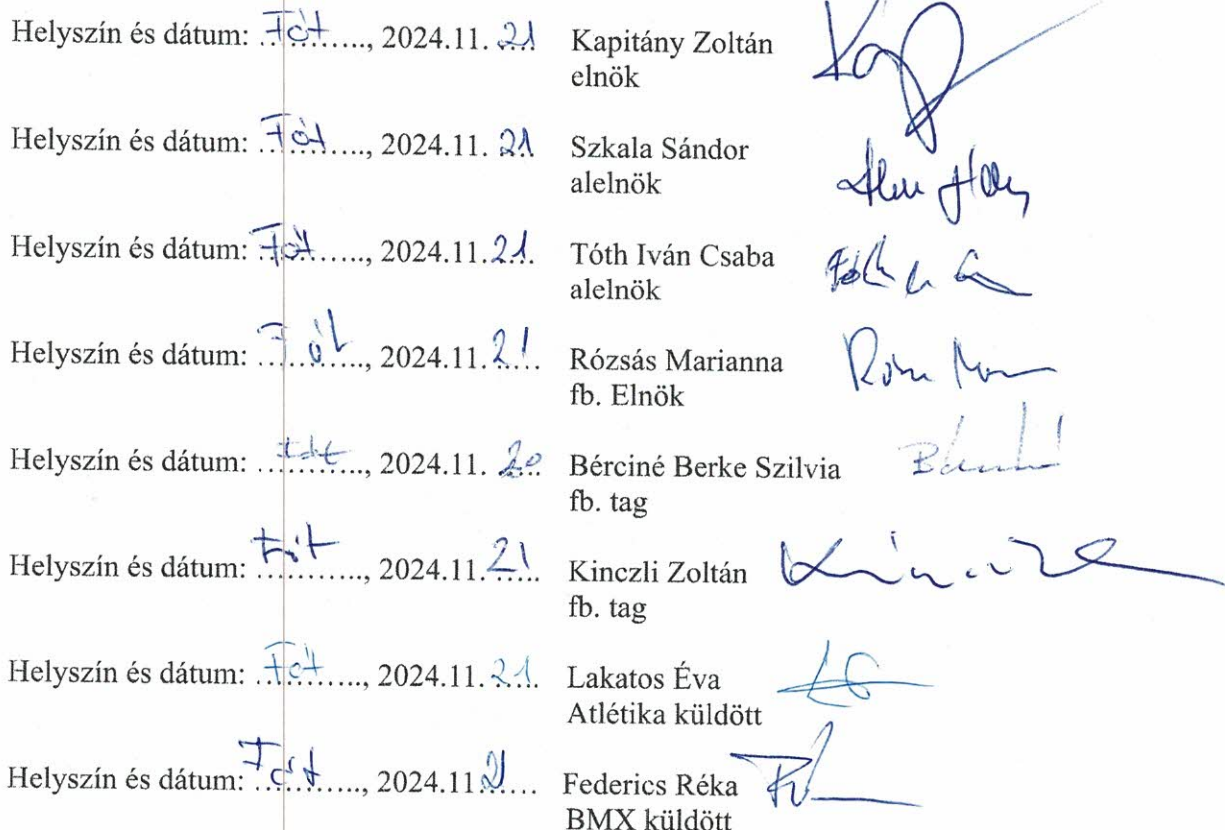 Helyszín és dátum: Fót, 2024.11. 21 Kapitány Zoltán
elnök
Helyszín és dátum: Fót, 2024.11. 21 Szkala Sándor
alelnök
Helyszín és dátum: Fót, 2024.11. 21. Tóth Iván Csaba
alelnök
Helyszín és dátum: Fót, 2024.11. 21 Rózsás Marianna
fb. Elnök
Helyszín és dátum: Fót, 2024.11. 20 Bérciné Berke Szilvia
fb. tag
Helyszín és dátum: Fót, 2024.11. 21 Kinczli Zoltán
fb. tag
Helyszín és dátum: Fót, 2024.11. 21. Lakatos Éva
Atlétika küldött
Helyszín és dátum: Fót, 2024.11 21 Federics Réka
BMX küldött